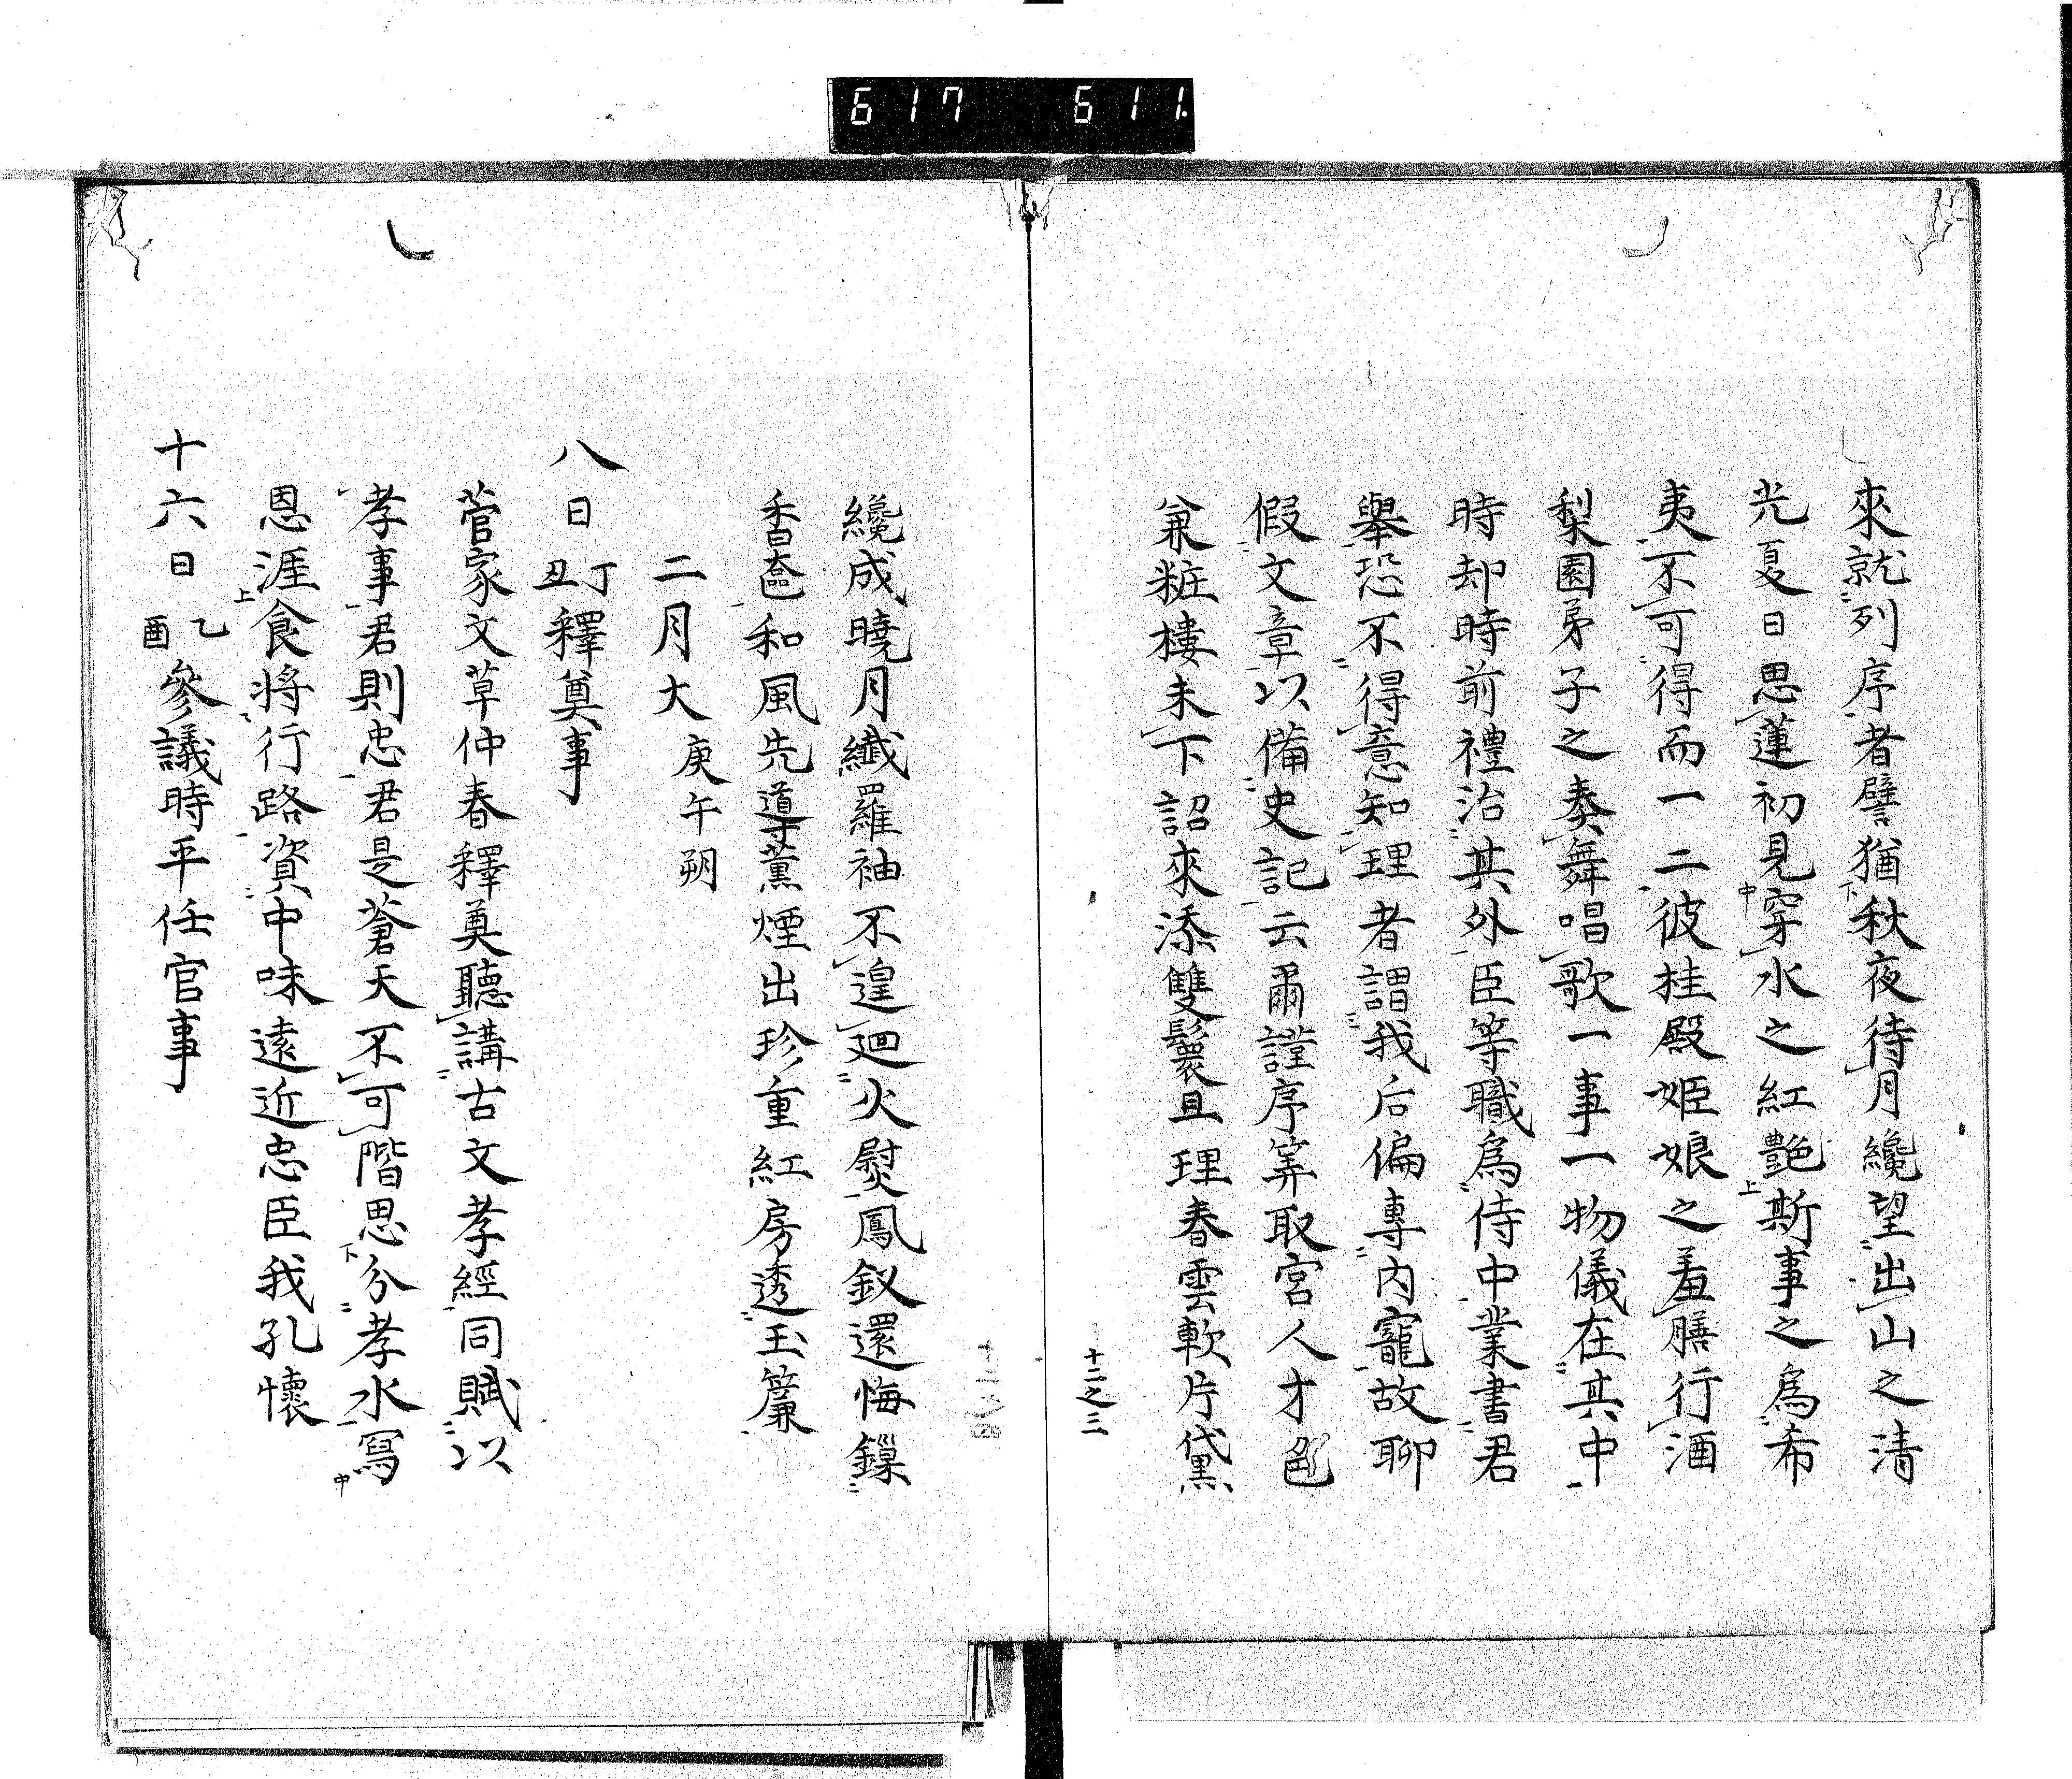 617 611.
來就列序者譬猶秋夜待月纔望出山之清
光夏日思蓮初見穿水之紅艶斯事之爲希
夷不可得而一二彼桂殿姫娘之羞膳行酒
梨園弟子之奏舞唱歌一事一物儀在其中
時却時前禮治其外臣等職爲侍中業書君
擧恐不得意知理者謂我后偏專内寵故聊
假文章以備史記云爾謹序筭取宮人才色
兼粧樓未下詔來添雙鬟且理春雲軟片黛
十二之三
纔成曉月纎羅袖不遑廻火熨鳳釵還悔鏁
香匳和風先導薫煙出珍重紅房透玉簾
二月大庚午朔
八日丁丑釋奠事
菅家文草仲春釋奠聽講古文孝經同賦以
孝事君則忠君是蒼天不可階思分孝水寫
恩涯食將行路資中味遠近忠臣我孔懷
十六日乙酉參議時平任官事